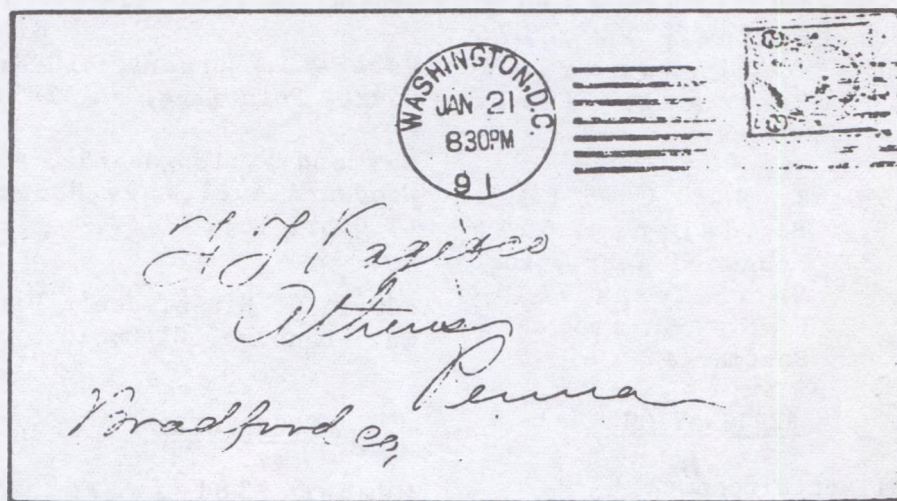 WASHINGTON, D.C.
JAN 21
830PM
91
Athens
Penna
Bradford co,